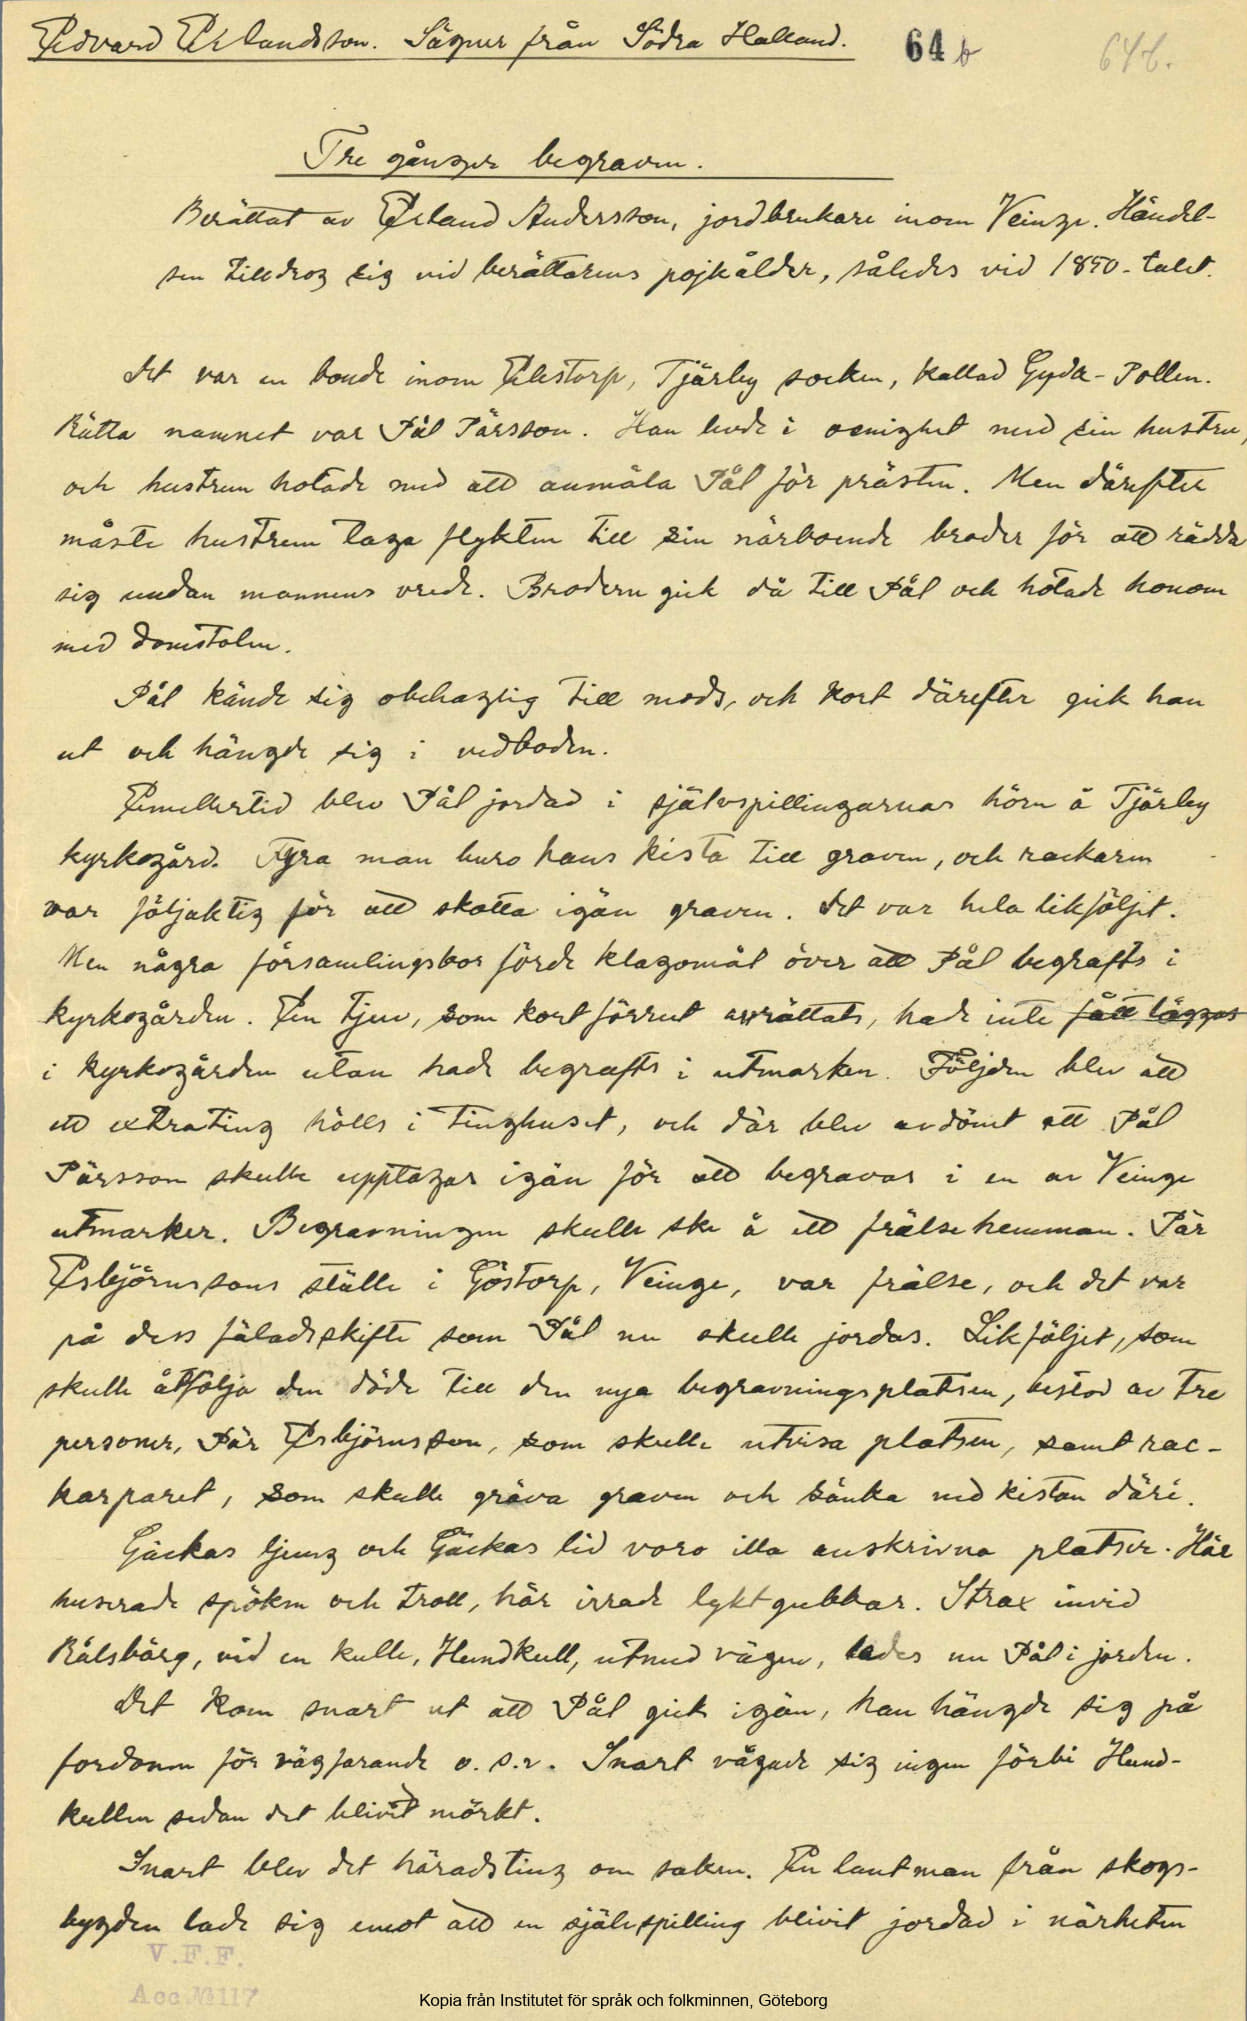 Edvard Erlandsson. Sägner från Södra Halland. 64 b 64b.
Tre gånger begraven.
Berättat av Erland Andersson, jordbrukare inom Veinge. Händel-
sen tilldrog sig vid berättarens pojkålder, således vid 1850-talet.
Det var en bonde inom Elestorp, Tjärby socken, kallad Gyda-Pollen.
Rätta namnet var Pål Pärsson. Han levde i oenighet med sin hustru,
och hustrun hotade med att anmäla Pål för prästen. Men därefter
måste hustrun taga flykten till sin närboende broder för att rädda
sig undan mannens vrede. Brodern gick då till Pål och hotade honom
med domstolen.
Pål kände sig obehaglig till mods, och kort därefter gick han
ut och hängde sig i vedboden.
Emellertid blev Pål jordad i självspillingarnas hörn å Tjärby
kyrkogård. Fyra man buro hans kista till graven, och rackaren
var följaktig för att skotta igän graven. Det var hela likföljet.
Men några församlingsbor förde klagomål över att Pål begrafts i
kyrkogården. En tjuv, som kort förrut avrättats, hade inte fått läggas
i kyrkogården utan hade begrafts i utmarken. Följden blev att
ett extrating hölls i tinghuset, och där blev avdömt att Pål
Pärsson skulle upptagas igän för att begravas i en av Veinge
utmarker. Begravningen skulle ske å ett frälsehemman. Pär
Esbjörnssons ställe i Göstorp, Veinge, var frälse, och det var
på dess fäladsskifte som Pål nu skulle jordas. Likföljet, som
skulle åtfölja den döde till den nya begravningsplatsen, bestod av tre
personer, Pär Esbjörnsson, som skulle utvisa platsen, samt rac-
karparet, som skulle gräva graven och sänka ned kistan däri.
Gäckas ljung och Gäckas lid voro illa anskrivna platser. Här
huserade spöken och troll, här irrade lyktgubbar. Strax invid
Rålsbärg, vid en kulle, Hundkull, utmed vägen, lades nu Pål i jorden.
Det kom snart ut att Pål gick igän, han hängde sig på
fordonen för vägfarande o. s. v. Snart vågade sig ingen förbi Hund-
kullen sedan det blivit mörkt.
Snart blev det häradsting om saken. En lantman från skogs-
bygden lade sig emot att en självspilling blivit jordad i närheten
V.F.F.
Acc.№117
Kopia från Institutet för språk och folkminnen, Göteborg